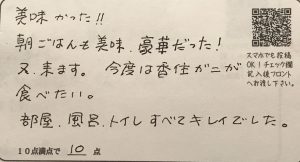 美味かった!!
朝ごはんも美味、豪華だった!
又、来ます。今度は香住ガニが
食べたい。
部屋、風呂、トイレすべてキレイでした。
10点満点で 10 点
スマホでも投稿
OK!チェック欄
記入後フロント
へお渡し下さい。